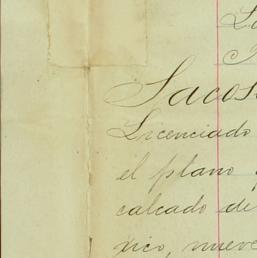 Sacos
Licenciado
el plano
calcado de
rico, nueve